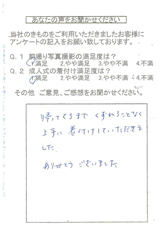 あなたの声をお聞かせください
当社のきものをご利用いただきましたお客様に
アンケートの記入をお願い致しております。
Q.1 前撮り写真撮影の満足度は?
1.満足 2.やや満足 3.やや不満 4.不満
Q.2 成人式の着付け満足度は?
1.満足 2.やや満足 3.やや不満 4.不満
その他 ご意見、ご感想をお聞かせください。
帰ってくるまで くずれることなく
上手に 着付けしていただきま
した。
ありがとう ございました